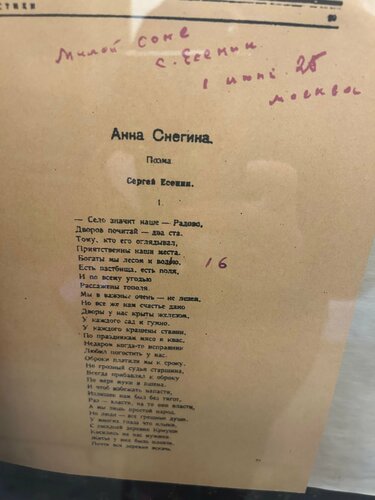 СТИКИ
Милой Соне
С. Есенин
1 июня 25
Москва
Анна Снегина.
Поэма
Сергей Есенин.
1.
— Село значит наше — Радово,
Дворов почитай — два ста.
Тому, кто его оглядывал,
Приятственны наши места.
Богаты мы лесом и водью,
16
Есть пастбища, есть поля,
И по всему угодью
Рассажены тополя.
Мы в важные очень — не лезем,
Но все же нам счастье дано
Дворы у нас крыты железом,
У каждого сад и гумно.
У каждого крашены ставни,
По праздникам мясо и квас.
Недаром когда-то исправник
Любил погостить у нас.
Оброки платили мы к сроку.
Но грозный судья старшина,
Всегда прибавлял к оброку
По мере муки и пшена.
И чтоб избежать напасти,
Излишек нам был без тягот,
Раз — власти, на то они власти,
А мы лишь простой народ.
Но люди — все грешные души.
У многих глаза что клыки.
С соседней деревни Криуши
Косились на нас мужики
Житье у них было плохое.
Почти вся деревня вскачь.